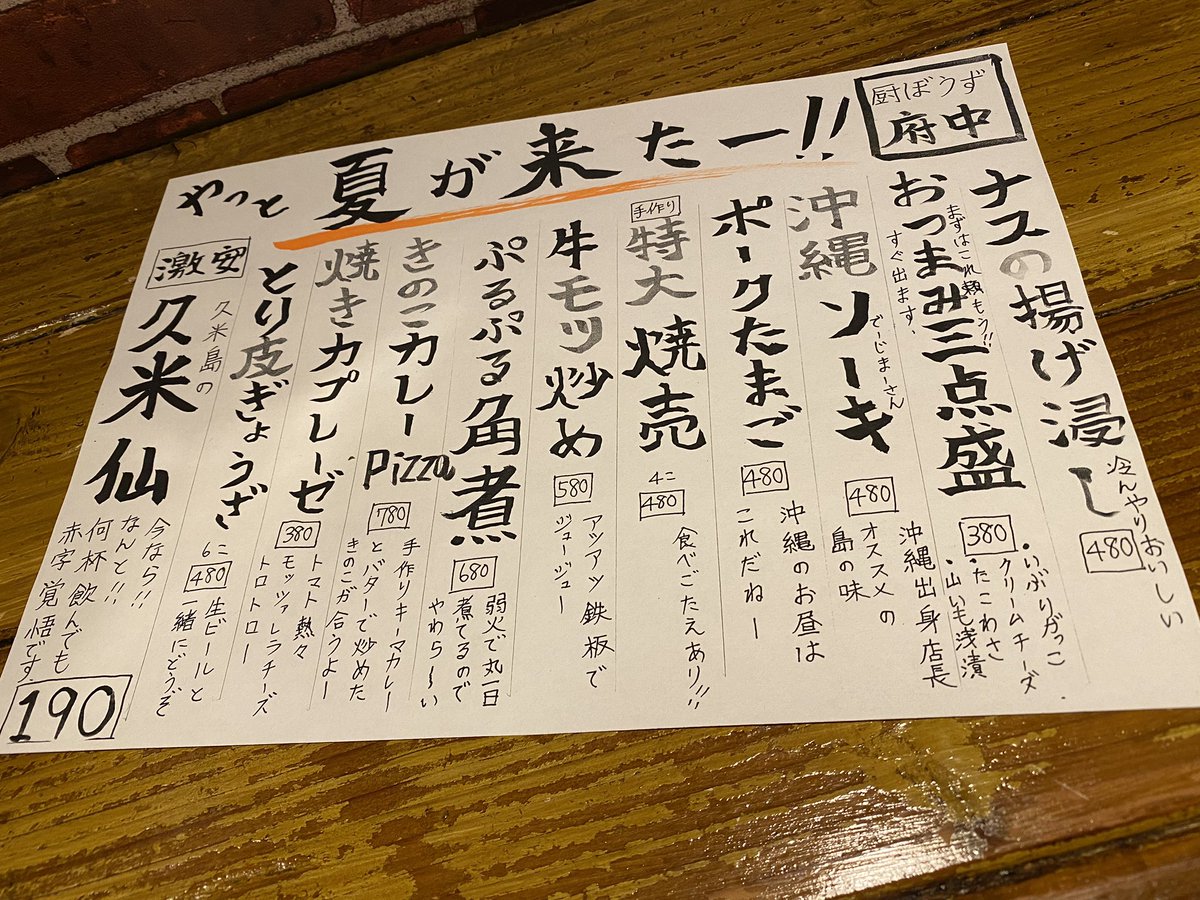 厨ぼうず
府中
やっと夏が来たー!!
ナスの揚げ浸し
480
冷んやりおいしい
おつまみ三点盛
まずはこれ頼もう!!
すぐ出ます。
380
・いぶりがっこ
クリームチーズ
・たこわさ
・山いも浅漬
沖縄ソーキ
でーじまーさん
480
沖縄出身店長
オススメの
島の味
ポークたまご
480
沖縄のお昼は
これだねー
手作り
特大焼売
4こ
480
食べごたえあり!!
牛モツ炒め
580
アッアッ鉄板で
ジュージュー
ぷるぷる角煮
680
弱火で丸一日
煮てるので
やわら〜い
きのこカレーPizza
780
手作りキーマカレー
とバターで炒めた
きのこが合うよー
焼きカプレーゼ
380
トマト熱々
モッツァレラチーズ
トロトロー
とり皮ぎょうざ
6こ
480
生ビールと
一緒にどうぞ
激安
久米島の
久米仙
今なら!!
なんと!!
何杯飲んでも
赤字覚悟です。
190